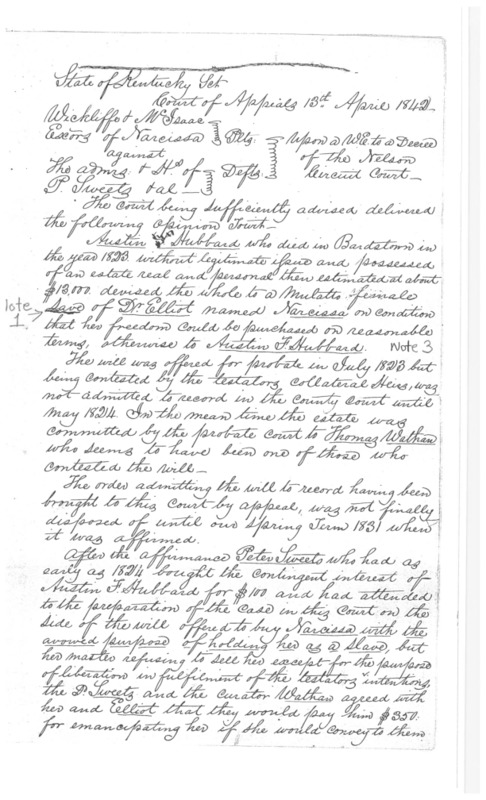 State of Kentucky Sct
Court of Appeals 13th April 1842
Wickliffe & McIsaac
Excors of Narcissa Plts
against
The admrs & Hs of Defts
P. Sweets & al
upon a WE to a Decree
of the Nelson
Circuit Court
The court being sufficiently advised delivered
the following opinion
Austin Hubbard who died in Bardstown in
the year 1823 without legitimate issue and possessed
of an estate real and personal then estimated at about
$13,000. devised the whole to a Mulatto female
Note 1. slave of Dr. Elliot named Narcissa on condition
that her freedom could be purchased on reasonable
terms, otherwise to Austin F. Hubbard. Note 3
The will was offered for probate in July 1823 but
being contested by the testators collateral Heirs, was
not admitted to record in the County Court until
May 1824. In the mean time the estate was
committed by the probate court to Thomas Wathan
who seems to have been one of those who
contested the will
The order admitting the will to record having been
brought to this Court by appeal, was not finally
disposed of until our Spring Term 1831 when
it was affirmed.
After the affirmance Peter Sweets who had as
early as 1824 bought the contingent interest of
Austin F. Hubbard for $100 and had attended
to the preparation of the case in this Court on the
side of the will offered to buy Narcissa with the
avowed purpose of holding her as a slave, but
her master refusing to sell her except for the purpose
of liberation in fulfilment of the testators intentions,
the P. Sweets and the curator Wathan agreed with
her and Elliot that they would pay him $350.
for emancipating her if she would convey to them